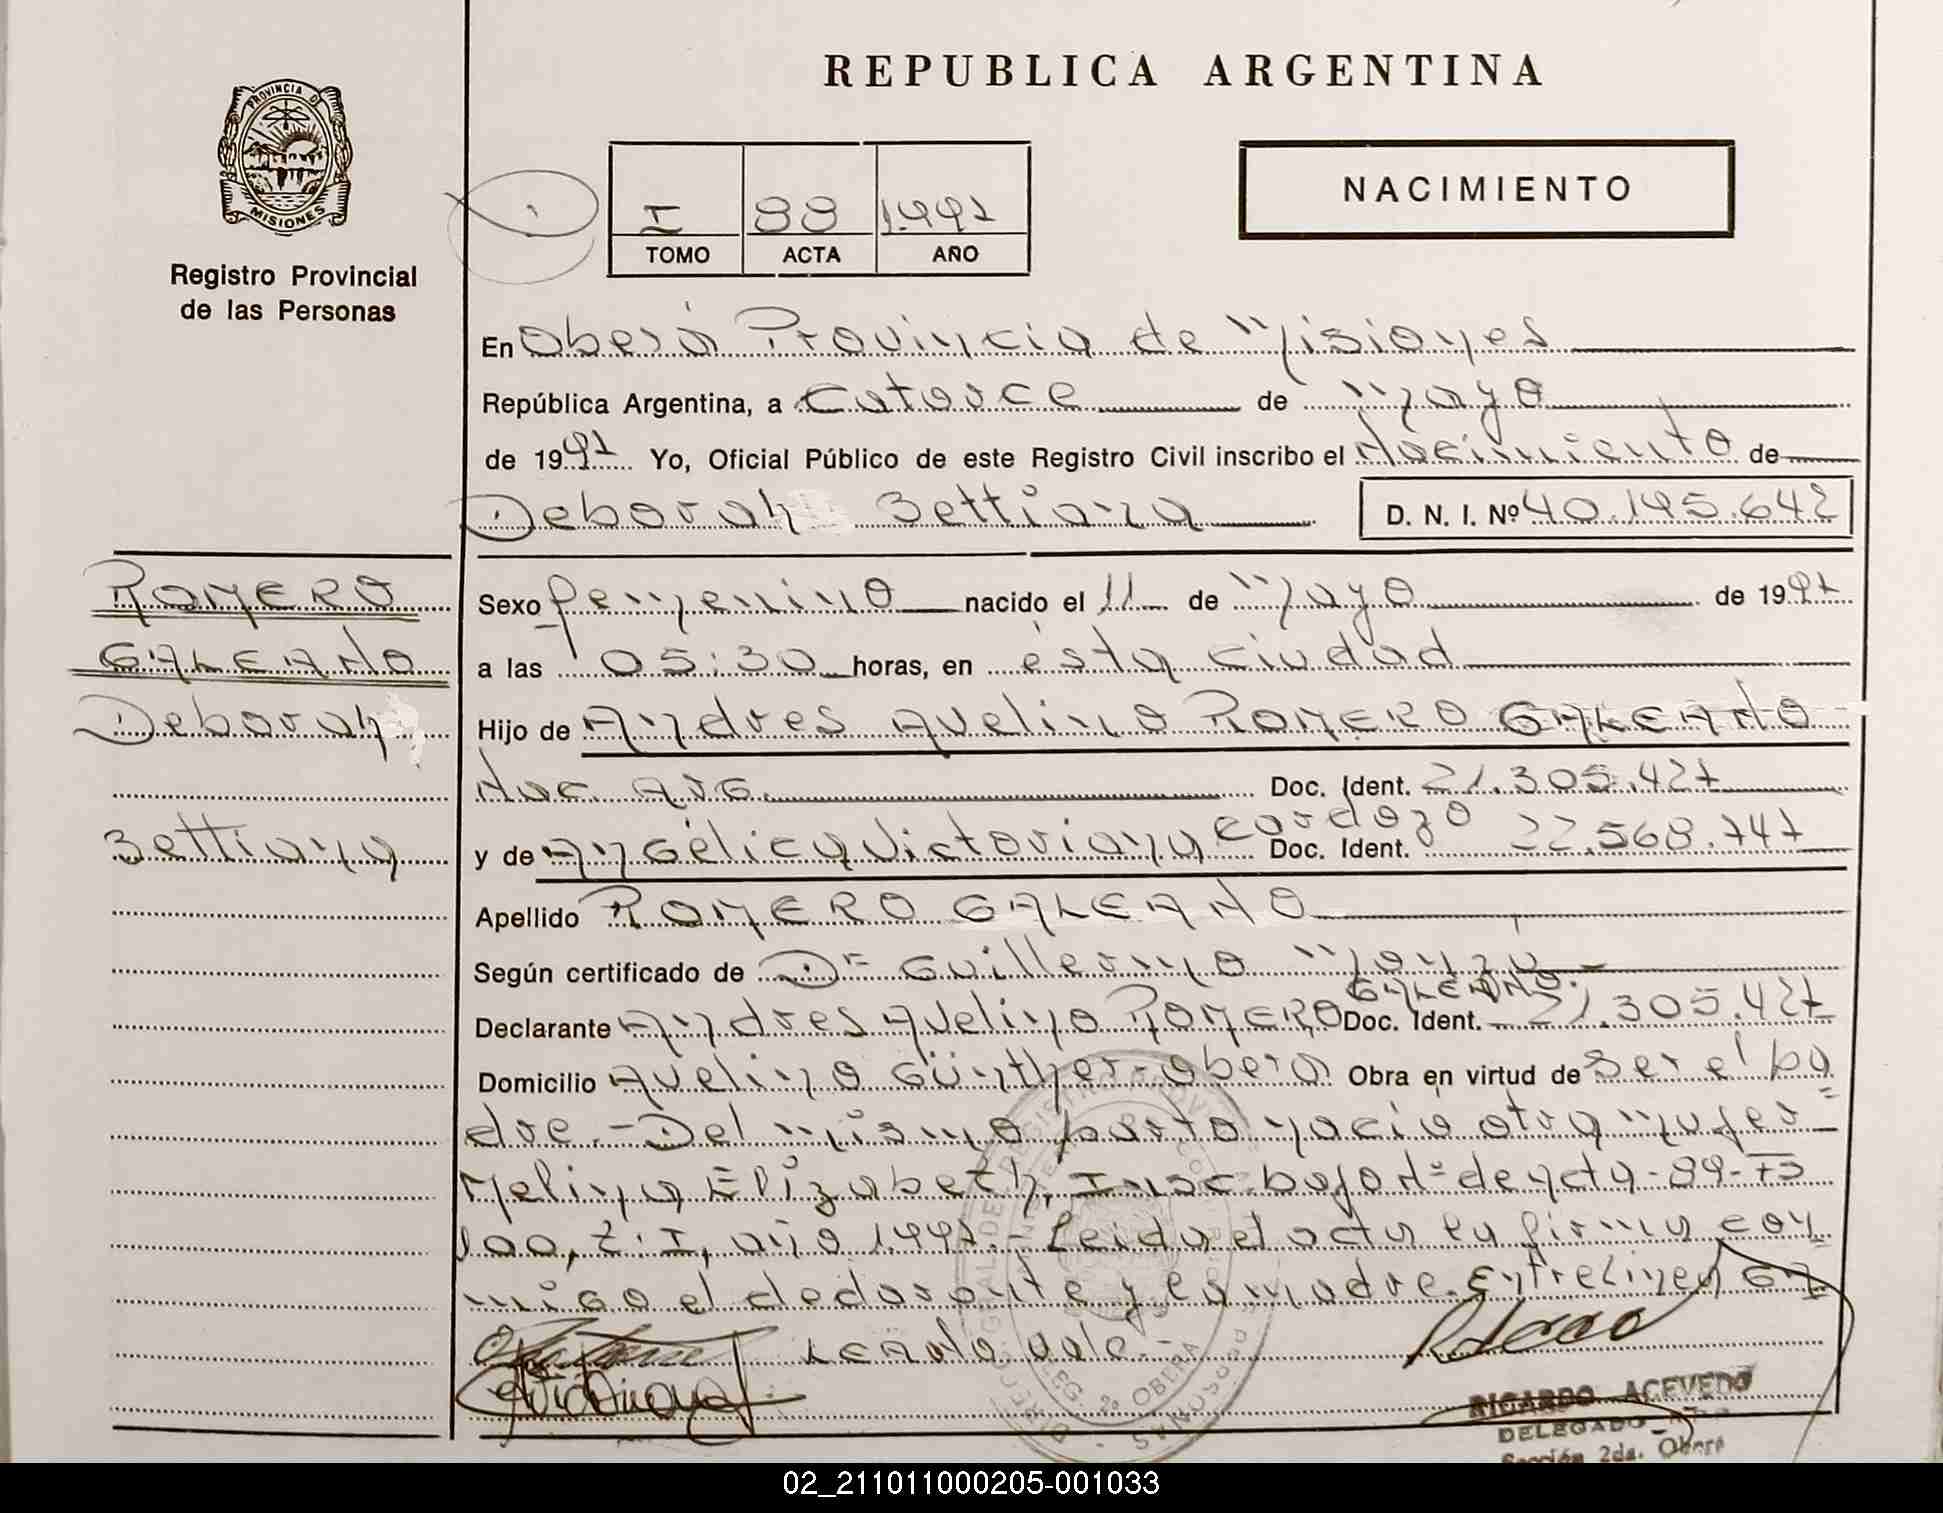 REPUBLICA ARGENTINA
PROVINCIA D
MISIONES
Registro Provincial
de las Personas
I 88 1.997
TOMO ACTA AÑO
NACIMIENTO
En Oberá Provincia de Misiones
República Argentina, a catorce de Mayo
de 1997 Yo, Oficial Público de este Registro Civil inscribo el Nacimiento de
Deborah Bettiana D. N. I. Nº 40.195.642
ROMERO
GALEANO
Deborah
Bettiana
Sexo femenino nacido el 11 de Mayo de 1997
a las 05:30 horas, en ésta ciudad
Hijo de Andres Avelino ROMERO GALEANO
Nac. Arg. Doc. Ident. 21.305.427
y de Angélica Victoriana Cardozo Doc. Ident. 22.568.747
Apellido ROMERO GALEANO
Según certificado de Dr Guillermo
GALEANO.
Declarante Andres Avelino ROMERO Doc. Ident. 21.305.427
Domicilio Avelino Günther-Oberá Obra en virtud de ser el pa
dre.-Del mismo parto nació otra mujer-
Melina Elizabeth, Insc. bajo Nº de acta-89-
T:I, año 1.997.- Leida el acta la firma con
migo el declarante y la madre. Entrelinea GA
LEANO vale.-
RICARDO ACEVEDO
DELEGADO
Sección 2da. Oberá
02_211011000205-001033